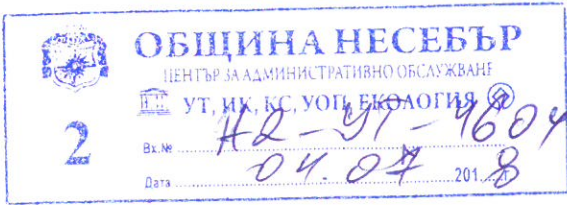 ОБЩИНА НЕСЕБЪР
ЦЕНТЪР ЗА АДМИНИСТРАТИВНО ОБСЛУЖВАНЕ
УТ, ИК, КС, УОП, ЕКОЛОГИЯ
2
Вх.№ Н2-УТ-4604
Дата 04.07 2018